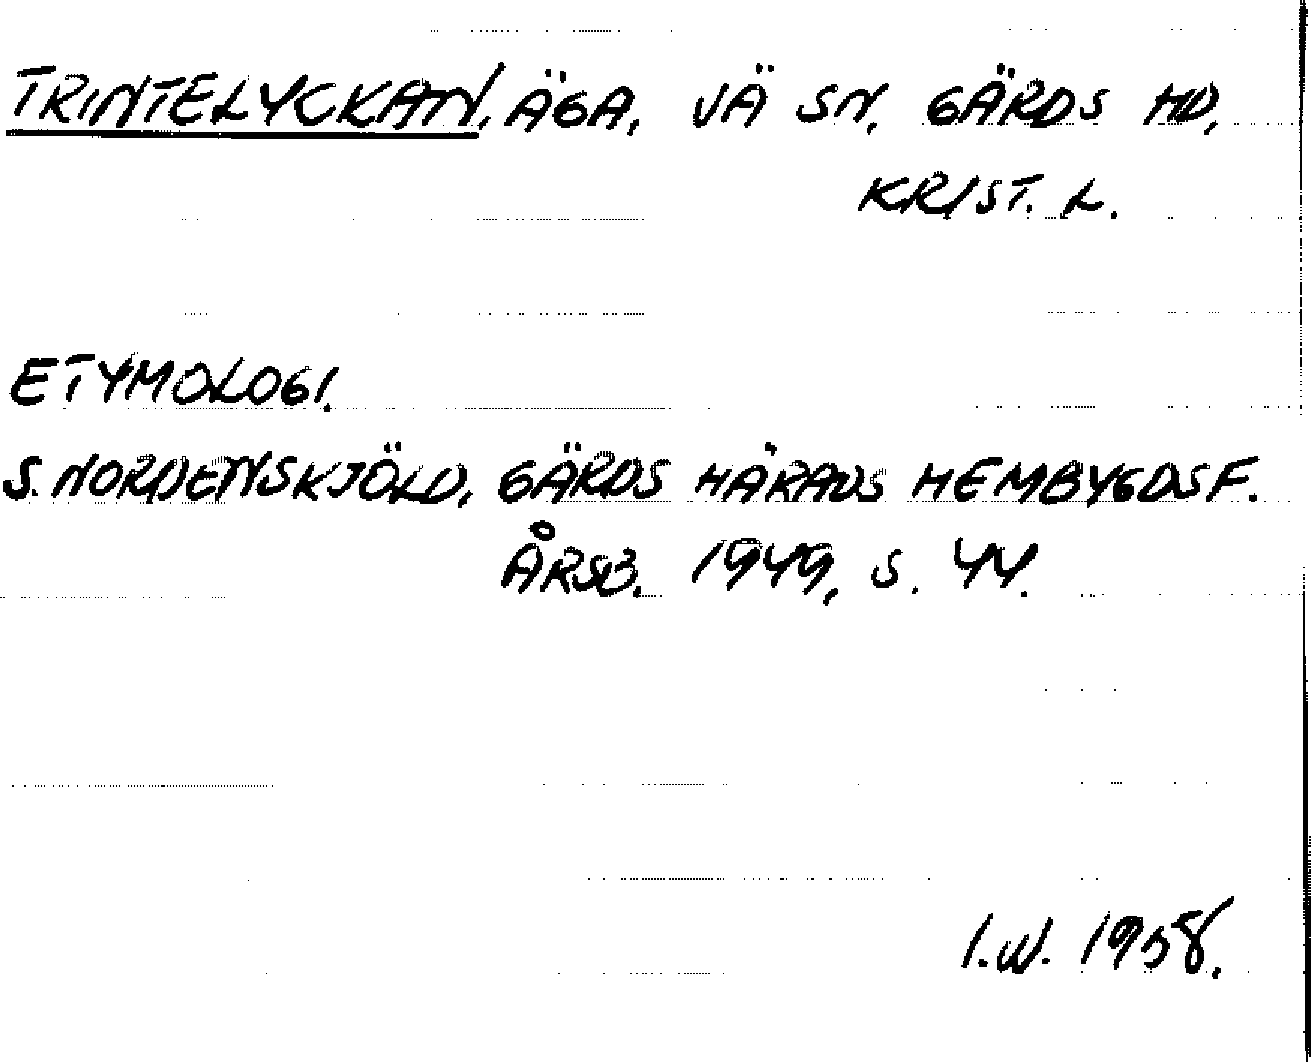 TRINTELYCKAN, ÄGA, VÄ SN, GÄRDS HD,
KRIST. L.
ETYMOLOGI.
S. NORDENSKJÖLD, GÄRDS HÄRADS HEMBYGDSF.
ÅRSB. 1949, S. 44.
I.W. 1958.